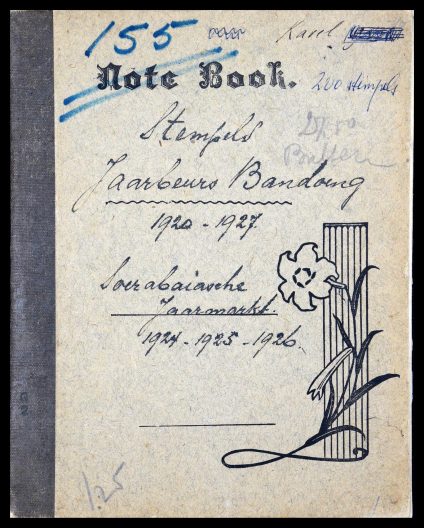 155
Note Book.
200 stempels
Stempels
Jaarbeurs Bandoeng
1920 - 1927.
Soerabaiasche
Jaarmarkt.
1924 - 1925 - 1926.
1.25